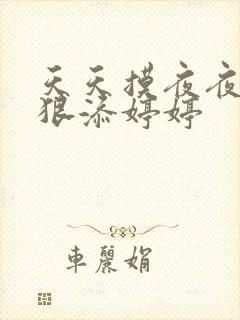 天天摸夜夜
狠添婷婷
车丽娟